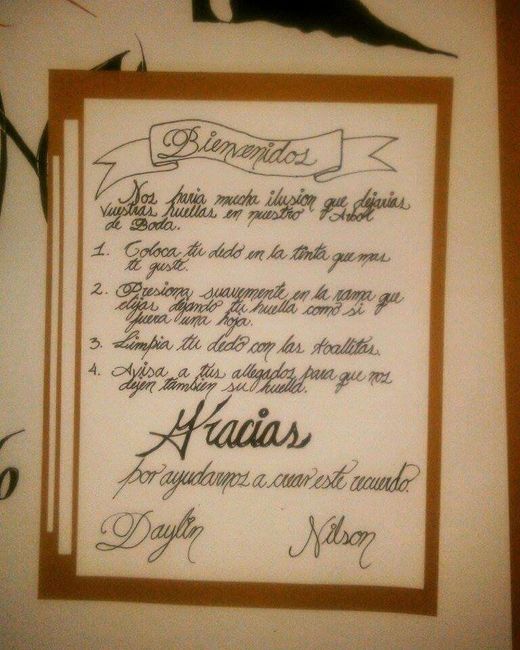 Bienvenidos
Nos haria mucha ilusion que dejarias
vuestras huellas en nuestro Arbol
de Boda.
1. Coloca tu dedo en la tinta que mas
te guste.
2. Presiona suavemente en la rama que
elijas dejando tu huella como si
fuera una hoja.
3. Limpia tu dedo con las toallitas.
4. Avisa a tus allegados para que nos
dejen tambien su huella.
Gracias
por ayudarnos a crear este recuerdo.
Daylin Nilson